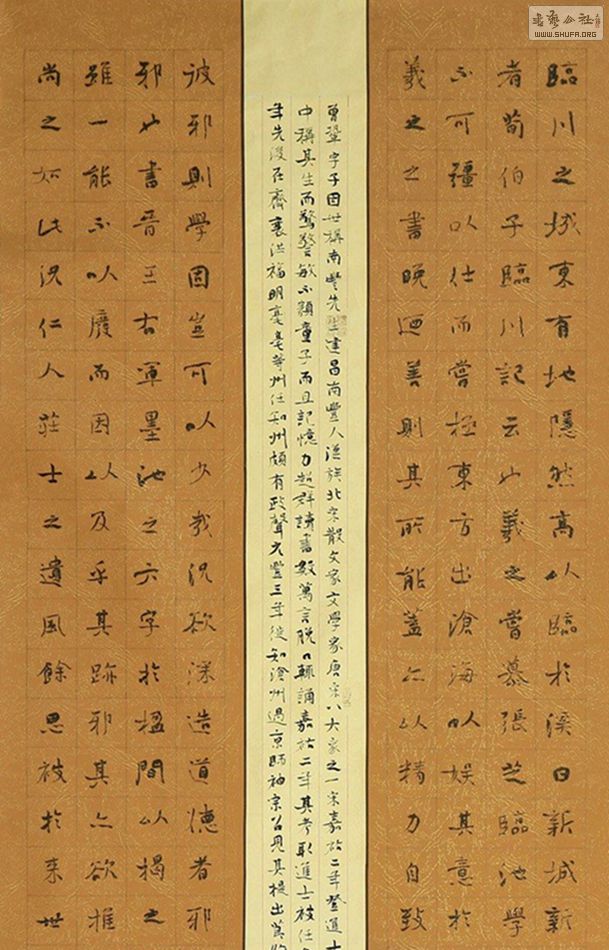 書藝公社
WWW.SHUFA.ORG
臨川之城東有地隱然高以臨於溪曰新城新
者荀伯子臨川記云也羲之嘗慕張芝臨池學
不可彊以仕而嘗極東方出滄海以娛其意於
羲之之書晚廼善則其所能蓋亦以精力自致
曾鞏字子固世稱南豐先生建昌南豐人漢族北宋散文家文學家唐宋八大家之一宋嘉祐二年登進士
中稱其生而驚警敏不類童子而且記憶力超群讀書數萬言脫口輒誦嘉祐二年其考取進士被任
年先後在齊襄洪福明亳亳等州任知州頗有政聲元豐三年徙知滄州過京師神宗召見其提出為
彼邪則學固豈可以少哉況欲深造道德者邪
邪也書晉王右軍墨池之六字於楹間以揭之
雖一能不以廢而因以及乎其跡邪其亦欲推
尚之如此況仁人莊士之遺風餘思被於來世